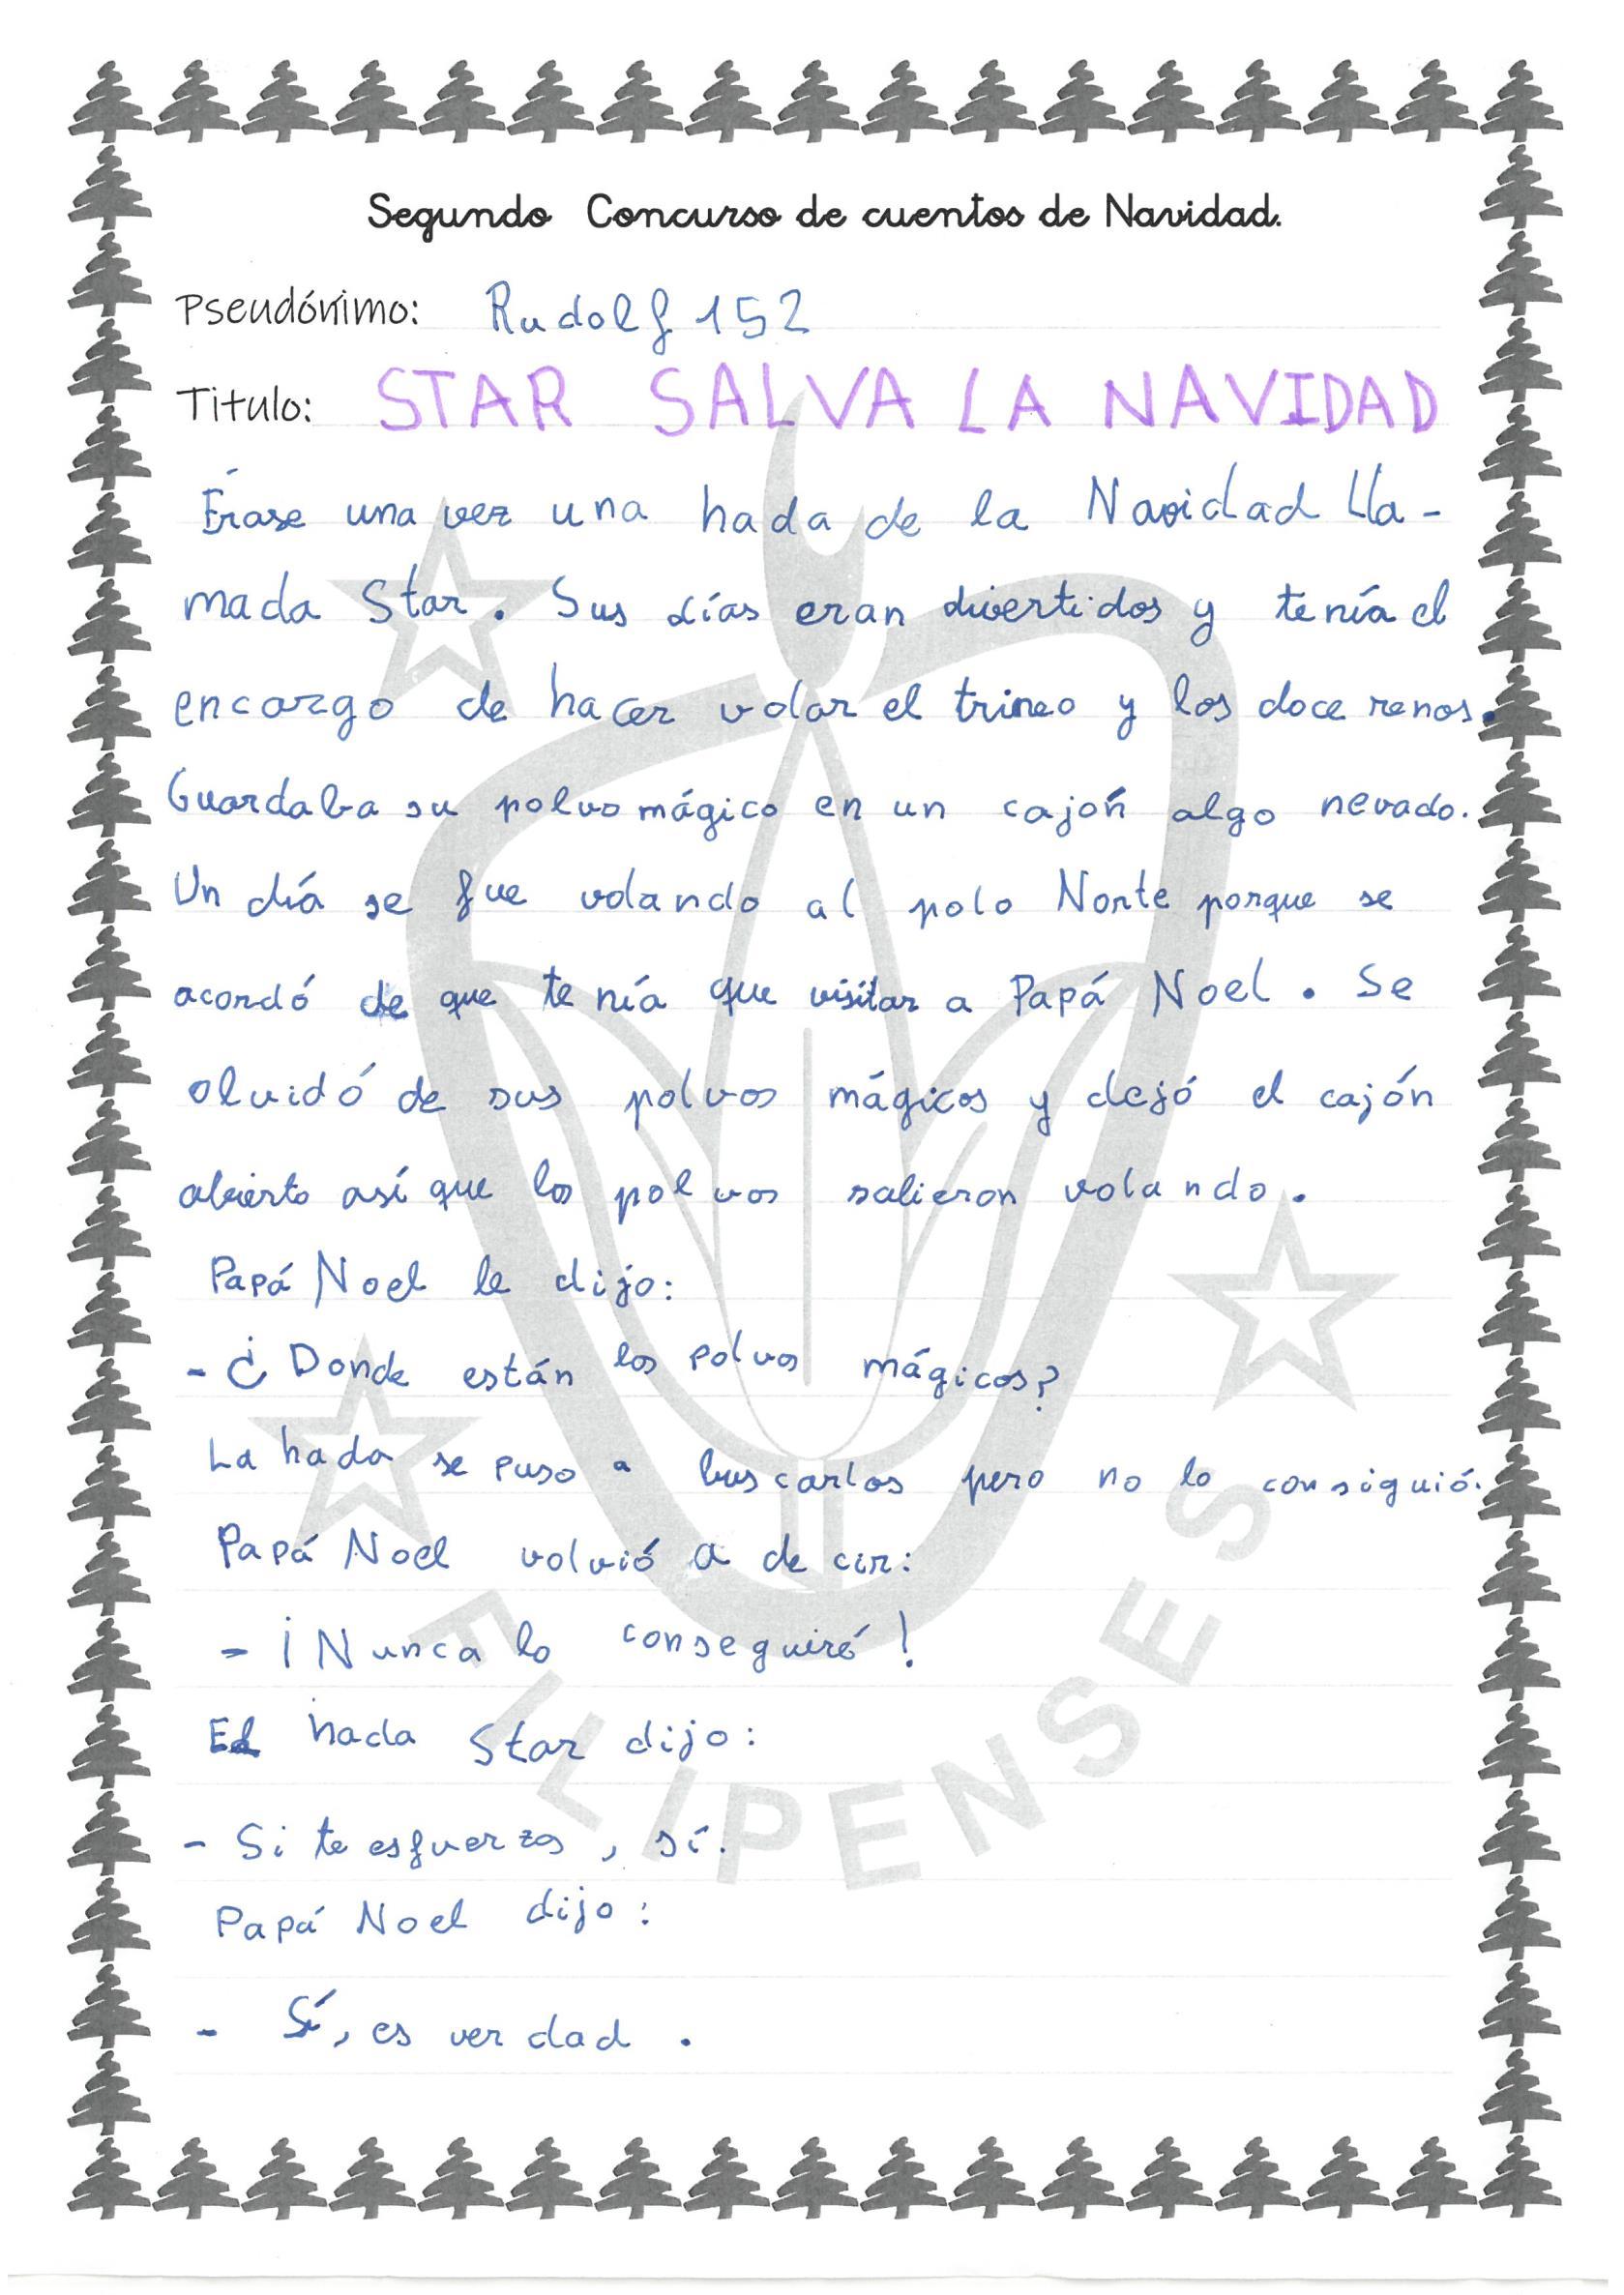 Segundo Concurso de cuentos de Navidad.
Pseudónimo: Rudolf 152
Titulo: STAR SALVA LA NAVIDAD
Érase una vez una hada de la Navidad lla-
mada Star. Sus días eran divertidos y tenía el
encargo de hacer volar el trineo y los doce renos.
Guardaba su polvo mágico en un cajón algo nevado.
Un día se fue volando al polo Norte porque se
acordó de que tenía que visitar a Papá Noel. Se
olvidó de sus polvos mágicos y dejó el cajón
abierto así que los polvos salieron volando.
Papá Noel le dijo:
- ¿Donde están los polvos mágicos?
La hada se puso a buscarlos pero no lo consiguió.
Papá Noel volvió a decir:
- ¡Nunca lo conseguiré!
El hada Star dijo:
- Si te esfuerzas, sí.
Papá Noel dijo:
- Sí, es verdad.
FILIPENSES